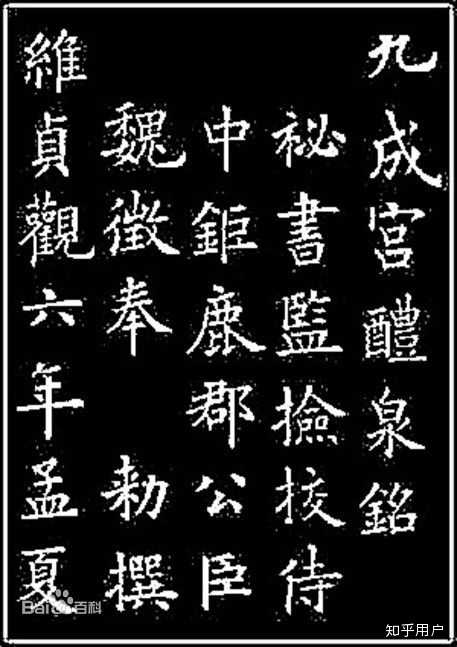 九成宮醴泉銘
祕書監撿挍侍
中鉅鹿郡公臣
魏徵奉 勑撰
維貞觀六年孟夏
Bai百科
知乎用户